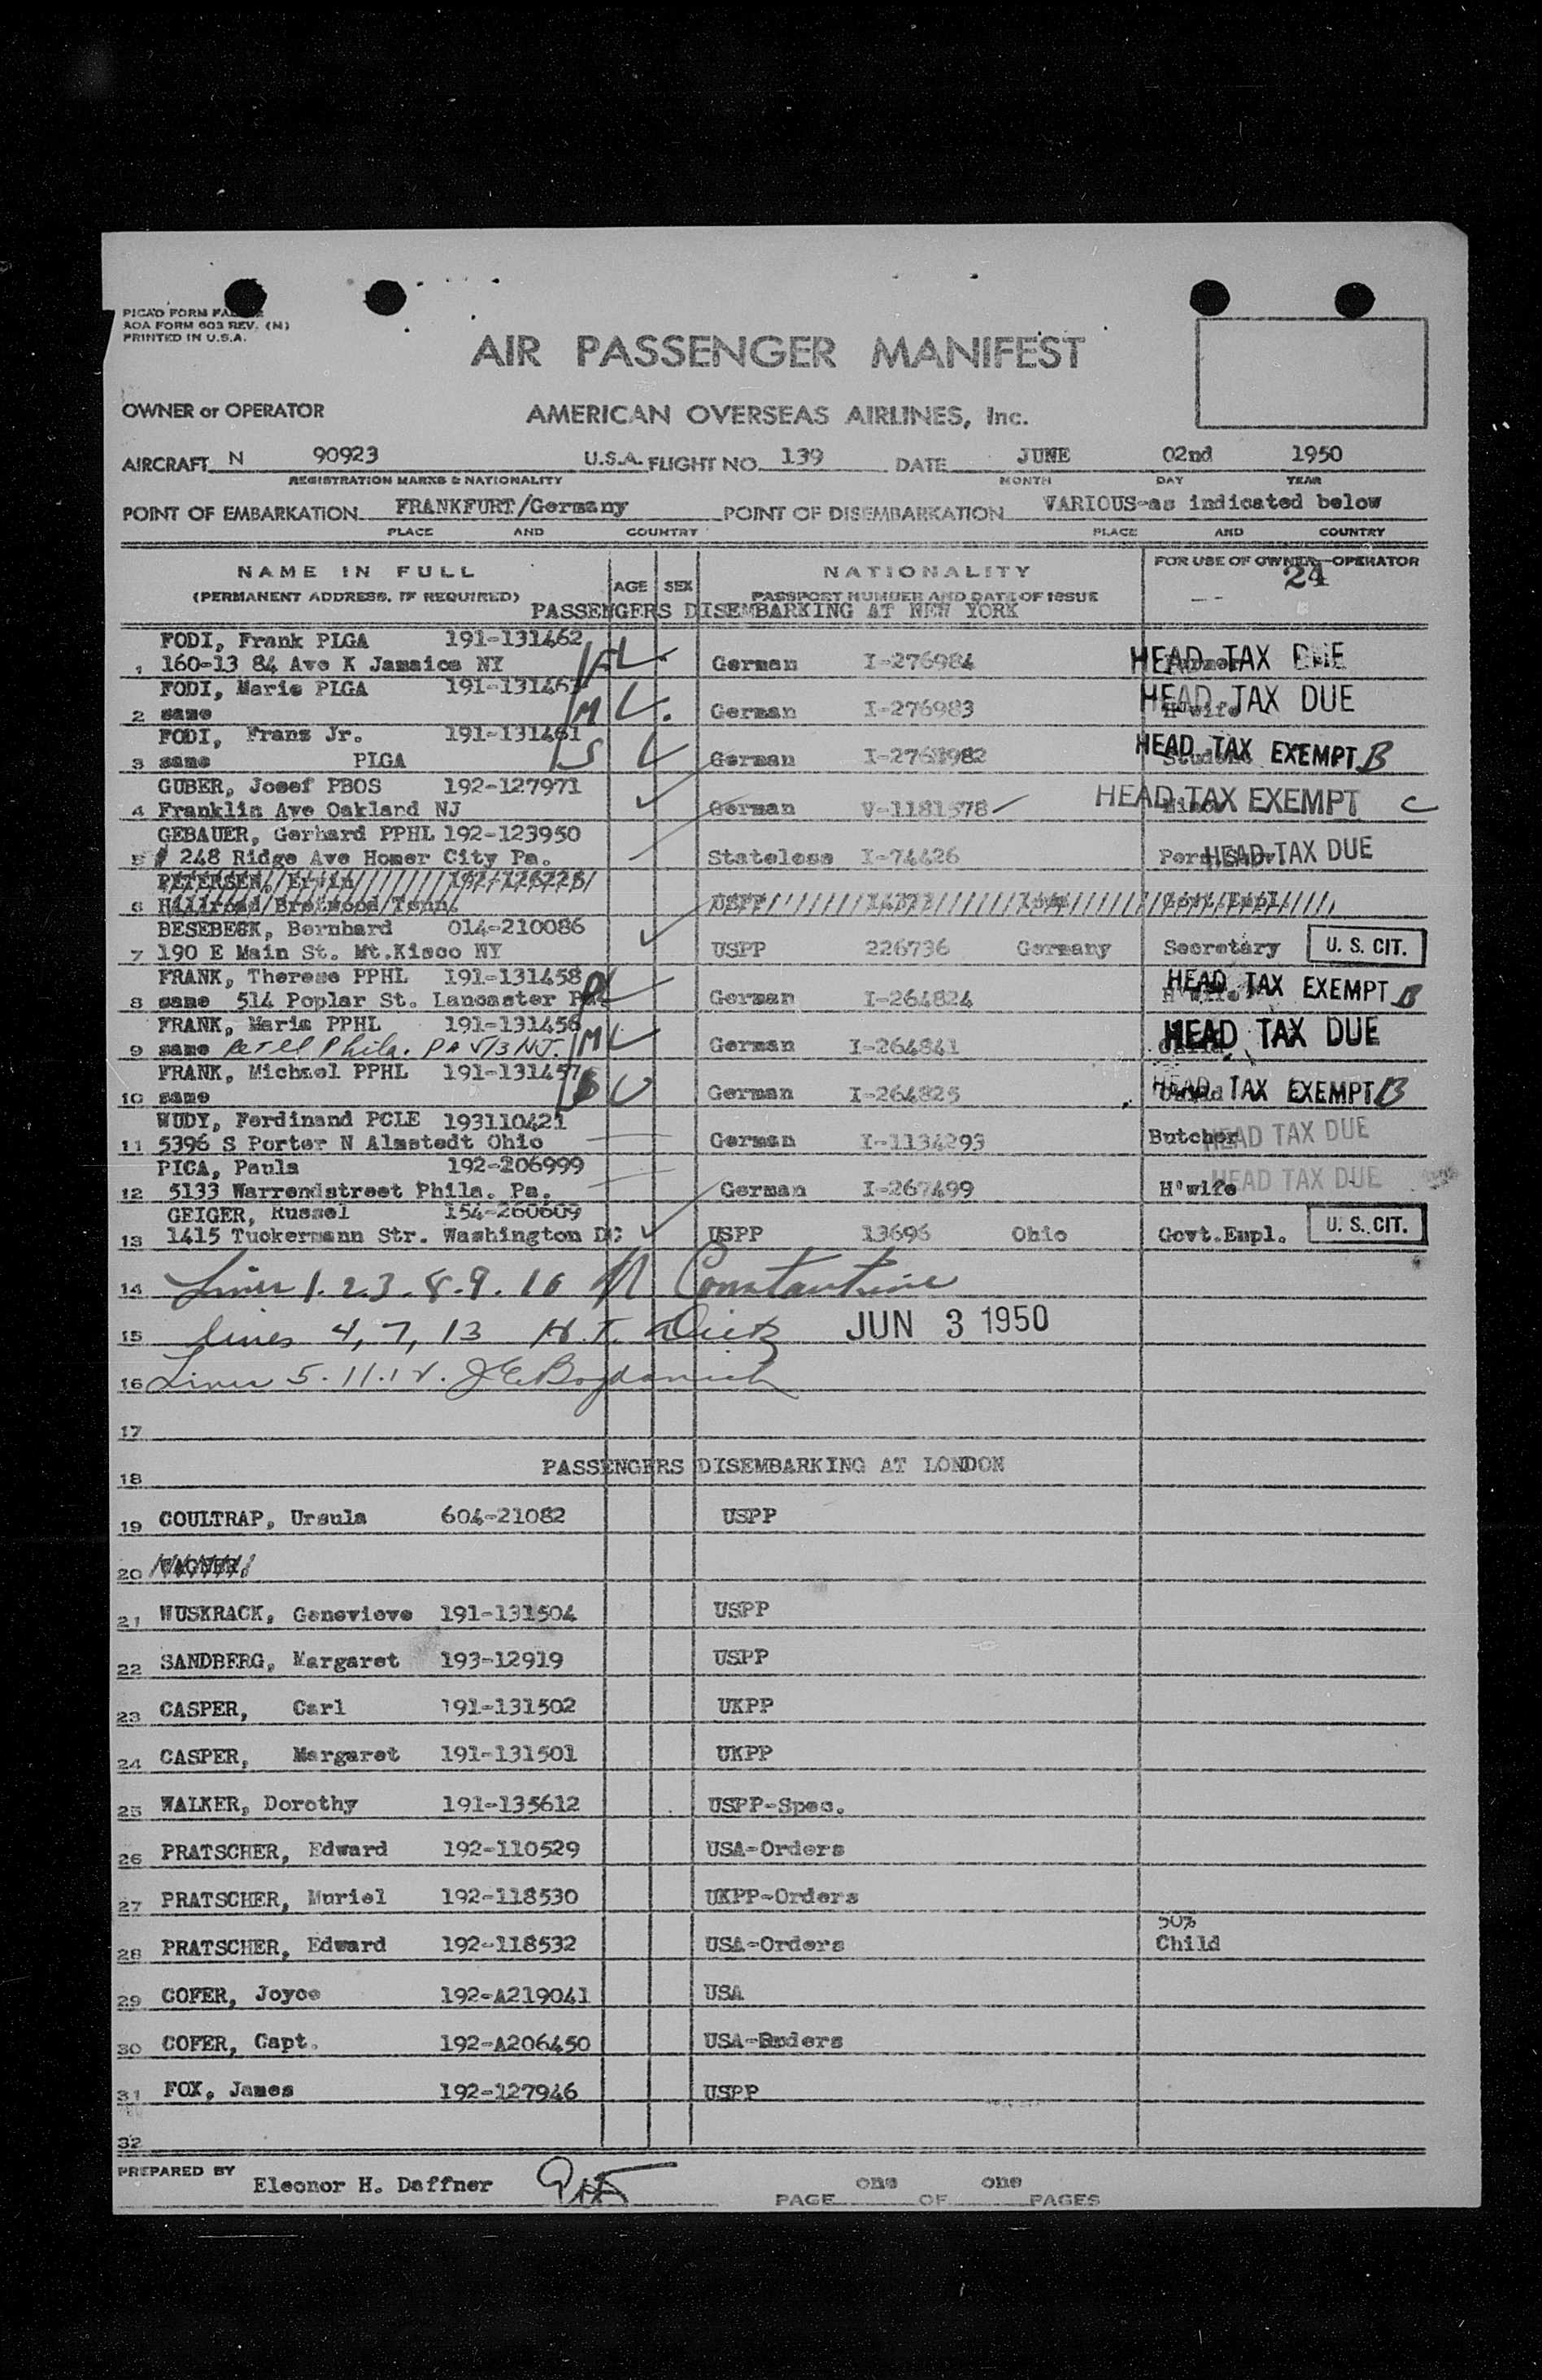 PICAO FORM
AOA FORM 603 REV. (M)
PRINTED IN U.S.A.
AIR PASSENGER MANIFEST
OWNER or OPERATOR AMERICAN OVERSEAS AIRLINES, Inc.
AIRCRAFT N 90923 U.S.A. FLIGHT NO. 139 DATE JUNE 02nd 1950
REGISTRATION MARKS & NATIONALITY MONTH DAY YEAR
POINT OF EMBARKATION FRANKFURT/Germany POINT OF DISEMBARKATION VARIOUS-as indicated below
PLACE AND COUNTRY PLACE AND COUNTRY
NAME IN FULL AGE SEX NATIONALITY FOR USE OF OWNER-OPERATOR
(PERMANENT ADDRESS, IF REQUIRED) PASSPORT NUMBER AND DATE OF ISSUE 24
PASSENGERS DISEMBARKING AT NEW YORK
FODI, Frank PLGA 191-131462
1 160-13 84 Ave K Jamaica NY German I-276984 HEAD TAX DUE
FODI, Marie PLGA
2 same M German I-276983 H'wife HEAD TAX DUE
FODI, Franz Jr. 191-131461
3 same PLGA S German Student HEAD TAX EXEMPT B
GUBER, Josef PBOS 192-127971
4 Franklin Ave Oakland NJ German V-1181578 HEAD TAX EXEMPT C
GEBAUER, Gerhard PPHL 192-123950
5 248 Ridge Ave Homer City Pa. Stateless I-74426 HEAD TAX DUE
PETERSEN,
6 Hillroad Brentwood Tenn. USPP Govt.Empl.
BESEBECK, Bernhard 014-210086
7 190 E Main St. Mt.Kisco NY USPP 226736 Germany Secretary U. S. CIT.
FRANK, Therese PPHL 191-131458
8 same 514 Poplar St. Lancaster German I-264824 H'wife HEAD TAX EXEMPT B
FRANK, Maria PPHL 191-131456
9 same Phila. PA M German I-264841 Child HEAD TAX DUE
FRANK, Michael PPHL 191-131457
10 same German I-264825 Child HEAD TAX EXEMPT B
WUDY, Ferdinand PCLE 193110421
11 5396 S Porter N Almstedt Ohio German I-1134293 Butcher HEAD TAX DUE
PICA, Paula 192-206999
12 5133 Warrendstreet Phila. Pa. German I-267499 H'wife HEAD TAX DUE
GEIGER, Russel 154-260609
13 1415 Tuckermann Str. Washington DC USPP 13696 Ohio Govt.Empl. U. S. CIT.
14 Lines 1.2.3.8.9.10 N Constantine
15 lines 4, 7, 13 H.T. Dietz JUN 3 1950
16 Lines 5.11.12. J E Bogdanich
17
18 PASSENGERS DISEMBARKING AT LONDON
19 COULTRAP, Ursula 604-21082 USPP
20 WAGNER,
21 WUSKRACK, Genevieve 191-131504 USPP
22 SANDBERG, Margaret 193-12919 USPP
23 CASPER, Carl 191-131502 UKPP
24 CASPER, Margaret 191-131501 UKPP
25 WALKER, Dorothy 191-135612 USPP-Spec.
26 PRATSCHER, Edward 192-110529 USA-Orders
27 PRATSCHER, Muriel 192-118530 UKPP-Orders
50%
28 PRATSCHER, Edward 192-118532 USA-Orders Child
29 COFER, Joyce 192-A219041 USA
30 COFER, Capt. 192-A206450 USA-Orders
31 FOX, James 192-127946 USPP
32
PREPARED BY Eleonor H. Daffner PAGE one OF one PAGES